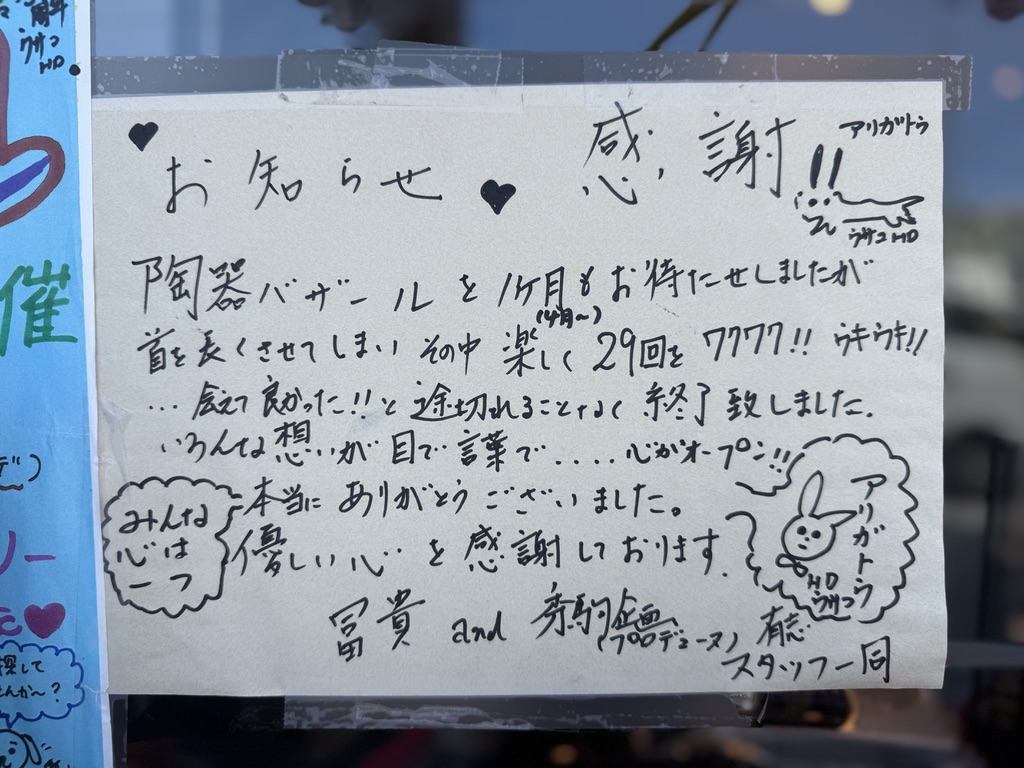 周年
ウサコ
HD
催
デ)
リー
た♥
探して
せんか〜?
♥
お知らせ ♥ 感謝
アリガトゥ
ウサコHD
陶器バザールを1ケ月もお待たせしましたが
(4月〜)
首を長くさせてしまい その中 楽しく29回を ワクワク!! ウキウキ!!
… 会えて良かった!!と途切れることなく 終了致しました.
いろんな想いが目で言葉で....心がオープン!!
本当にありがとうございました。
優しい心を感謝しております.
みんな
心は
一つ
アリガトウ
HD
ウサコ
冨貴 and 秀駒企画 有志
(プロデュース)
スタッフ一同